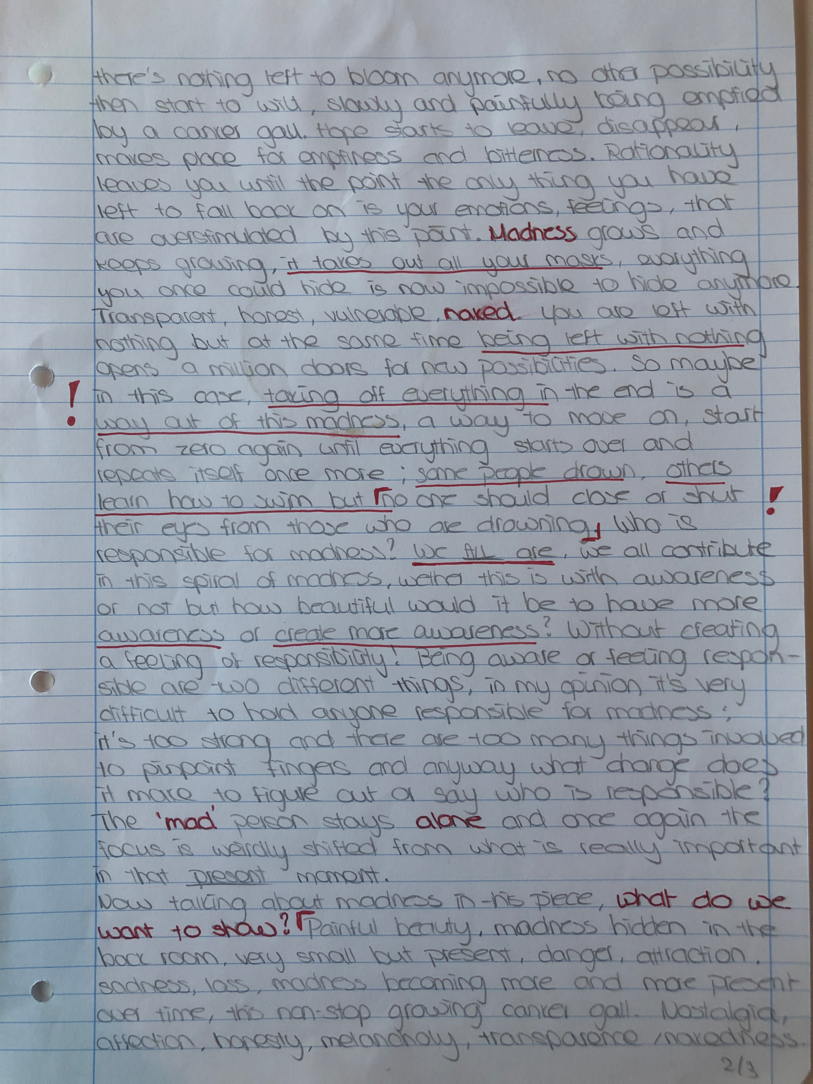 there's nothing left to bloom anymore, no other possibility
then start to wild, slowly and painfully being emptied
by a cancer gall. Hope starts to leave, disappear,
makes place for emptiness and bitterness. Rationality
leaves you until the point the only thing you have
left to fall back on is your emotions, feelings, that
are overstimulated by this point. Madness grows and
keeps growing, it takes out all your masks, everything
you once could hide is now impossible to hide anymore.
Transparent, honest, vulnerable, naked. You are left with
nothing but at the same time being left with nothing
opens a million doors for new possibilities. So maybe
! in this case, taking off everything in the end is a
way out of this madness, a way to move on, start
from zero again until everything starts over and
repeats itself once more ; some people drown, others
learn how to swim but no one should close or shut !
their eyes from those who are drowning, Who is
responsible for madness? We ALL are, we all contribute
in this spiral of madness, wether this is with awareness
or not but how beautiful would it be to have more
awareness or create more awareness? Without creating
a feeling of responsibility! Being aware or feeling respon-
sible are two different things, in my opinion it's very
difficult to hold anyone responsible for madness ;
it's too strong and there are too many things involved
to pinpoint fingers and anyway what change does
it make to figure out or say who is responsible?
The 'mad' person stays alone and once again the
focus is weirdly shifted from what is really important
in that present moment.
Now talking about madness in this piece, what do we
want to show? Painful beauty, madness hidden in the
back room, very small but present, danger, attraction,
sadness, loss, madness becoming more and more present
over time, this non-stop growing cancer gall. Nostalgia,
affection, honesty, melancholy, transparence / nakedness.
2/3